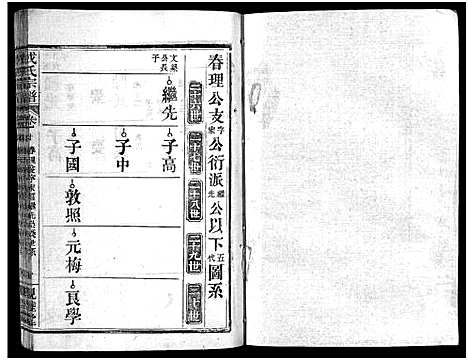 春理公支字宗公衍派繼先公以下五代圖系
二十六世
二十七世
二十八世
二十九世
三十世
文燦公長子
繼先
子高
子中
子國
敦照
元梅
良學
成氏宗譜